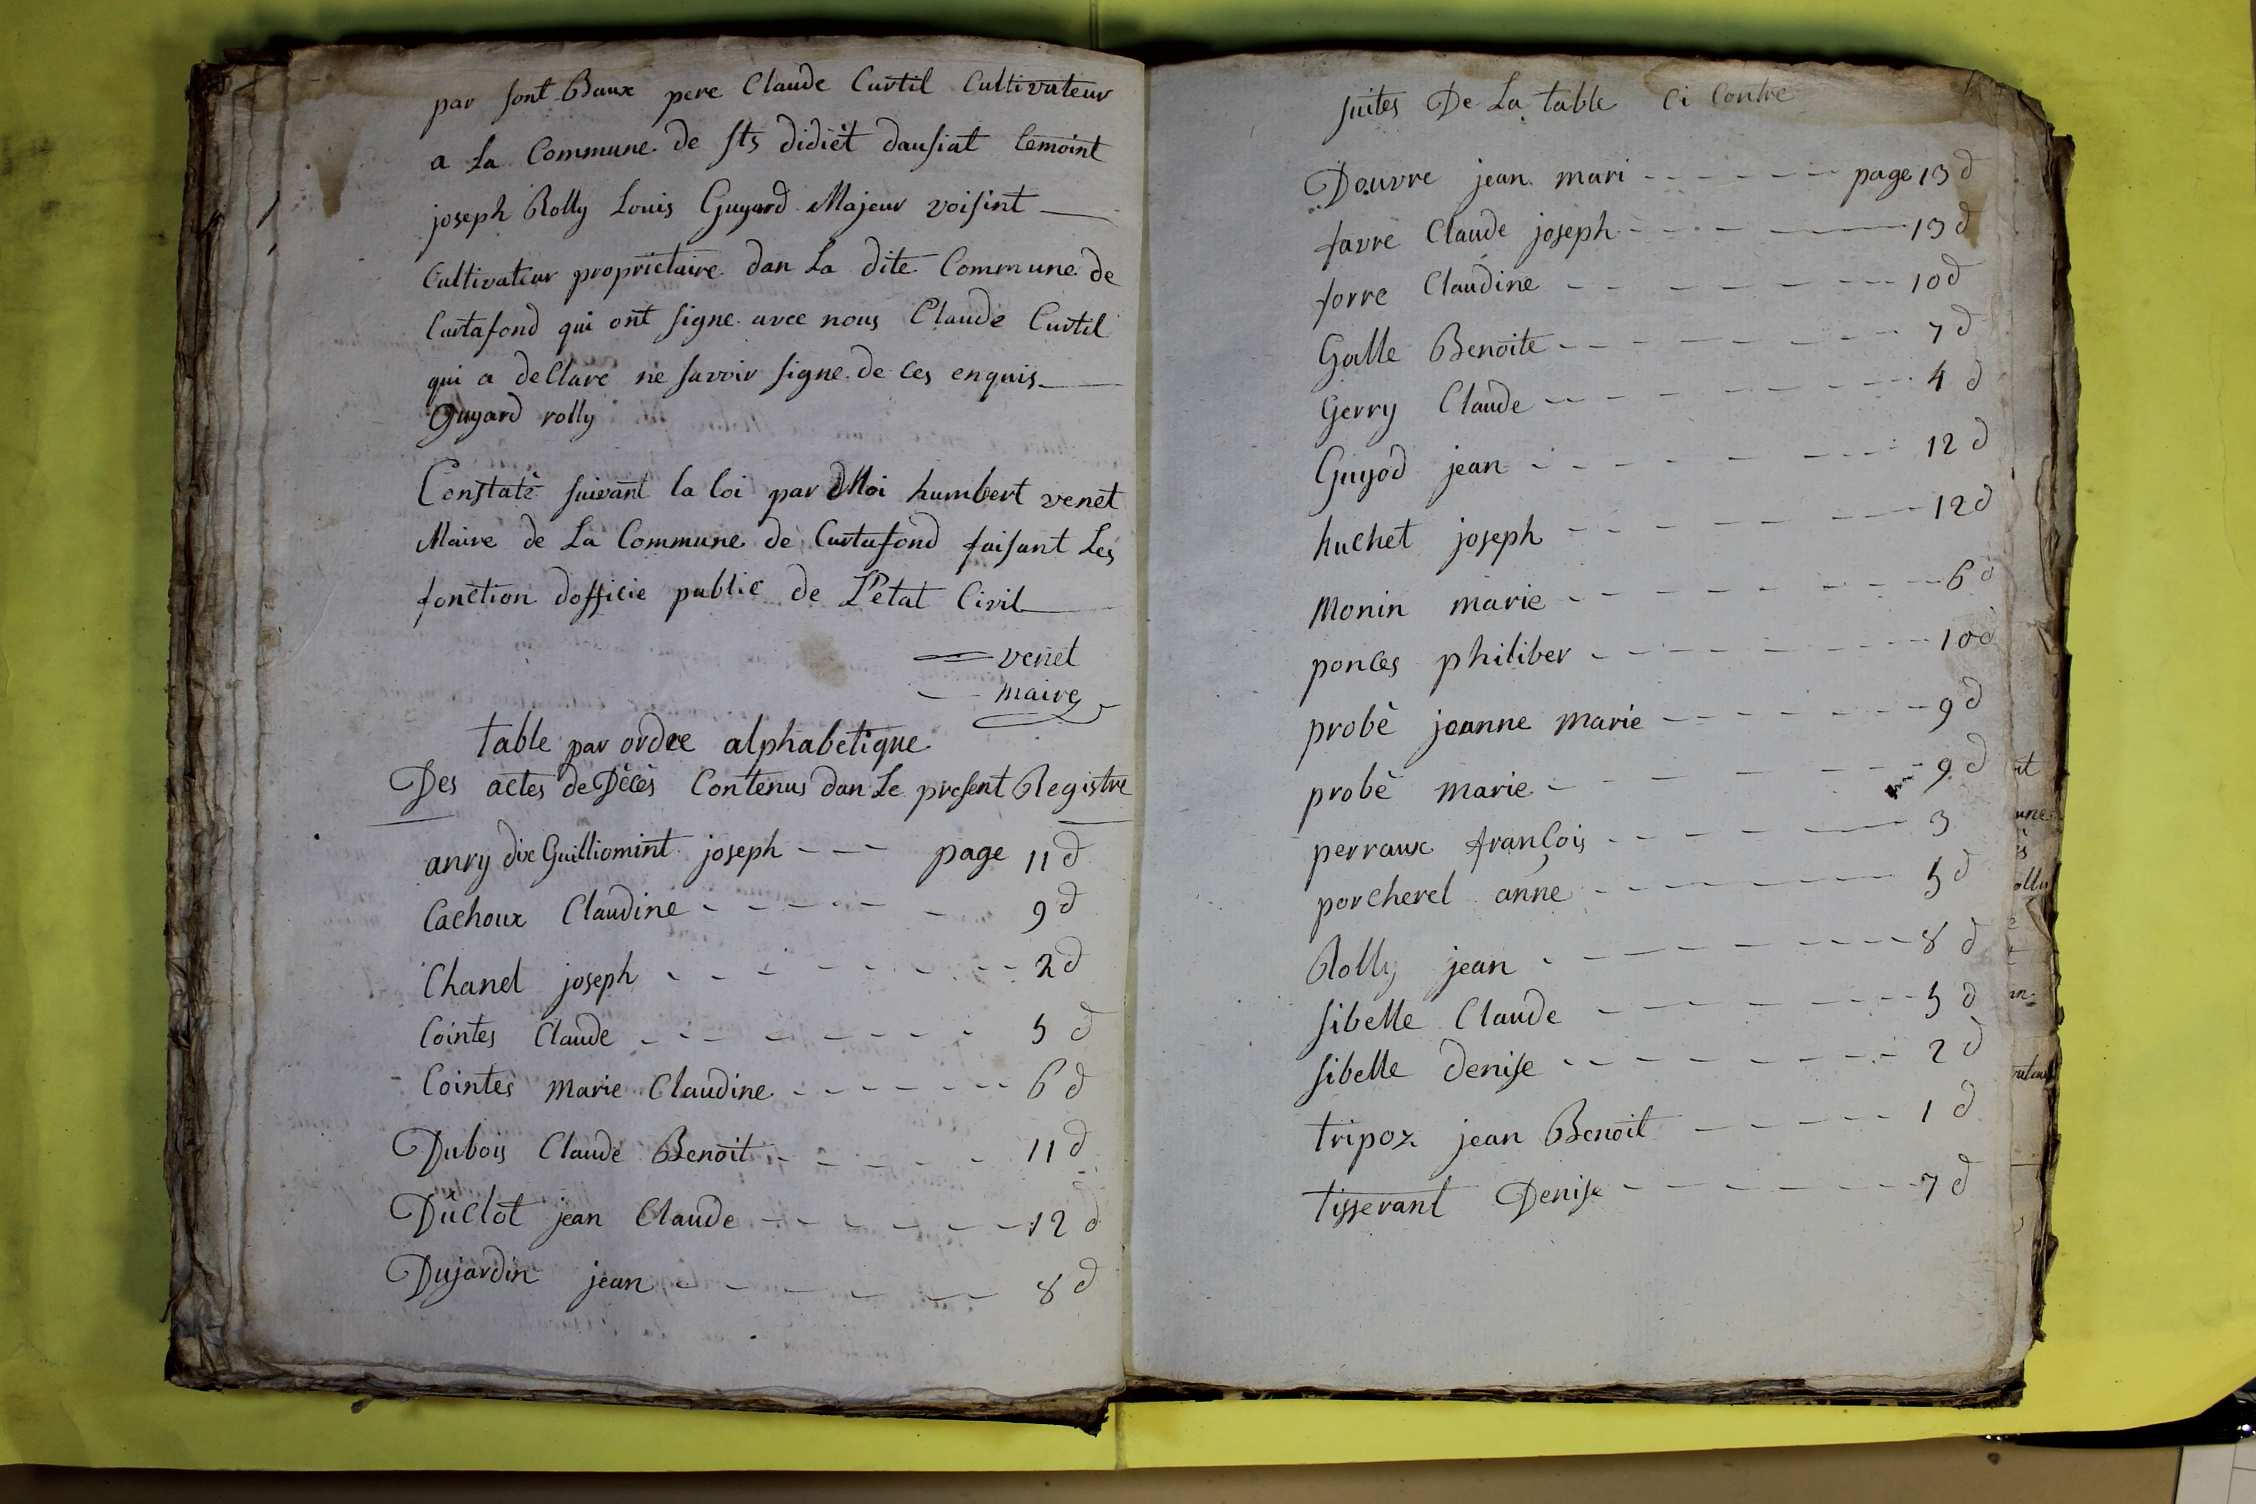 par sont Baux pere Claude Curtil Cultivateur
a La Commune de sts didiét dausiat temoint
joseph Rolly Louis Guyard Majeur voisint
Cultivateur proprietaire dan La dite Commune de
Curtafond qui ont signe avec nous Claude Curtil
qui a declare ne savoir signe de ces enquis
Guyard rolly
Constaté suivant la loi par Moi humbert venet
Maire de La Commune de Curtafond faisant Les
fonction dofficie public de L'etat Civil
venet
maire
table par ordre alphabetique
Des actes de Décès Contenus dan Le present Registre
anry dix Guilliomint joseph - - - page 11 d
Cachoux Claudine - - - - - - 9 d
Chanel joseph - - - - - - - 2 d
Cointes Claude - - - - - - - 5 d
Cointes Marie Claudine - - - - - - 6 d
Dubois Claude Benoit - - - - - 11 d
Duclot jean Claude - - - - - - 12 d
Dujardin jean - - - - - - 8 d
suites De La table Ci Contre
Douvre jean mari - - - - - - page 13 d
favre Claude joseph - - - - - 13 d
forre Claudine - - - - - - - 10 d
Galle Benoite - - - - - - - 7 d
Gerry Claude - - - - - - - 4 d
Guyod jean - - - - - - - 12 d
huchet joseph - - - - - - - 12 d
Monin marie - - - - - - - 6 d
ponces philiber - - - - - - - 10 d
probé jeanne marie - - - - - - - 9 d
probé marie - - - - - - 9 d
perraux françois - - - - - - 3
porcherel anne - - - - - - 5 d
Rolly jean - - - - - - - 8 d
sibelle Claude - - - - - - - 5 d
sibelle denise - - - - - - - 2 d
tripoz jean Benoit - - - - - 1 d
tisserant Denise - - - - - - - 7 d